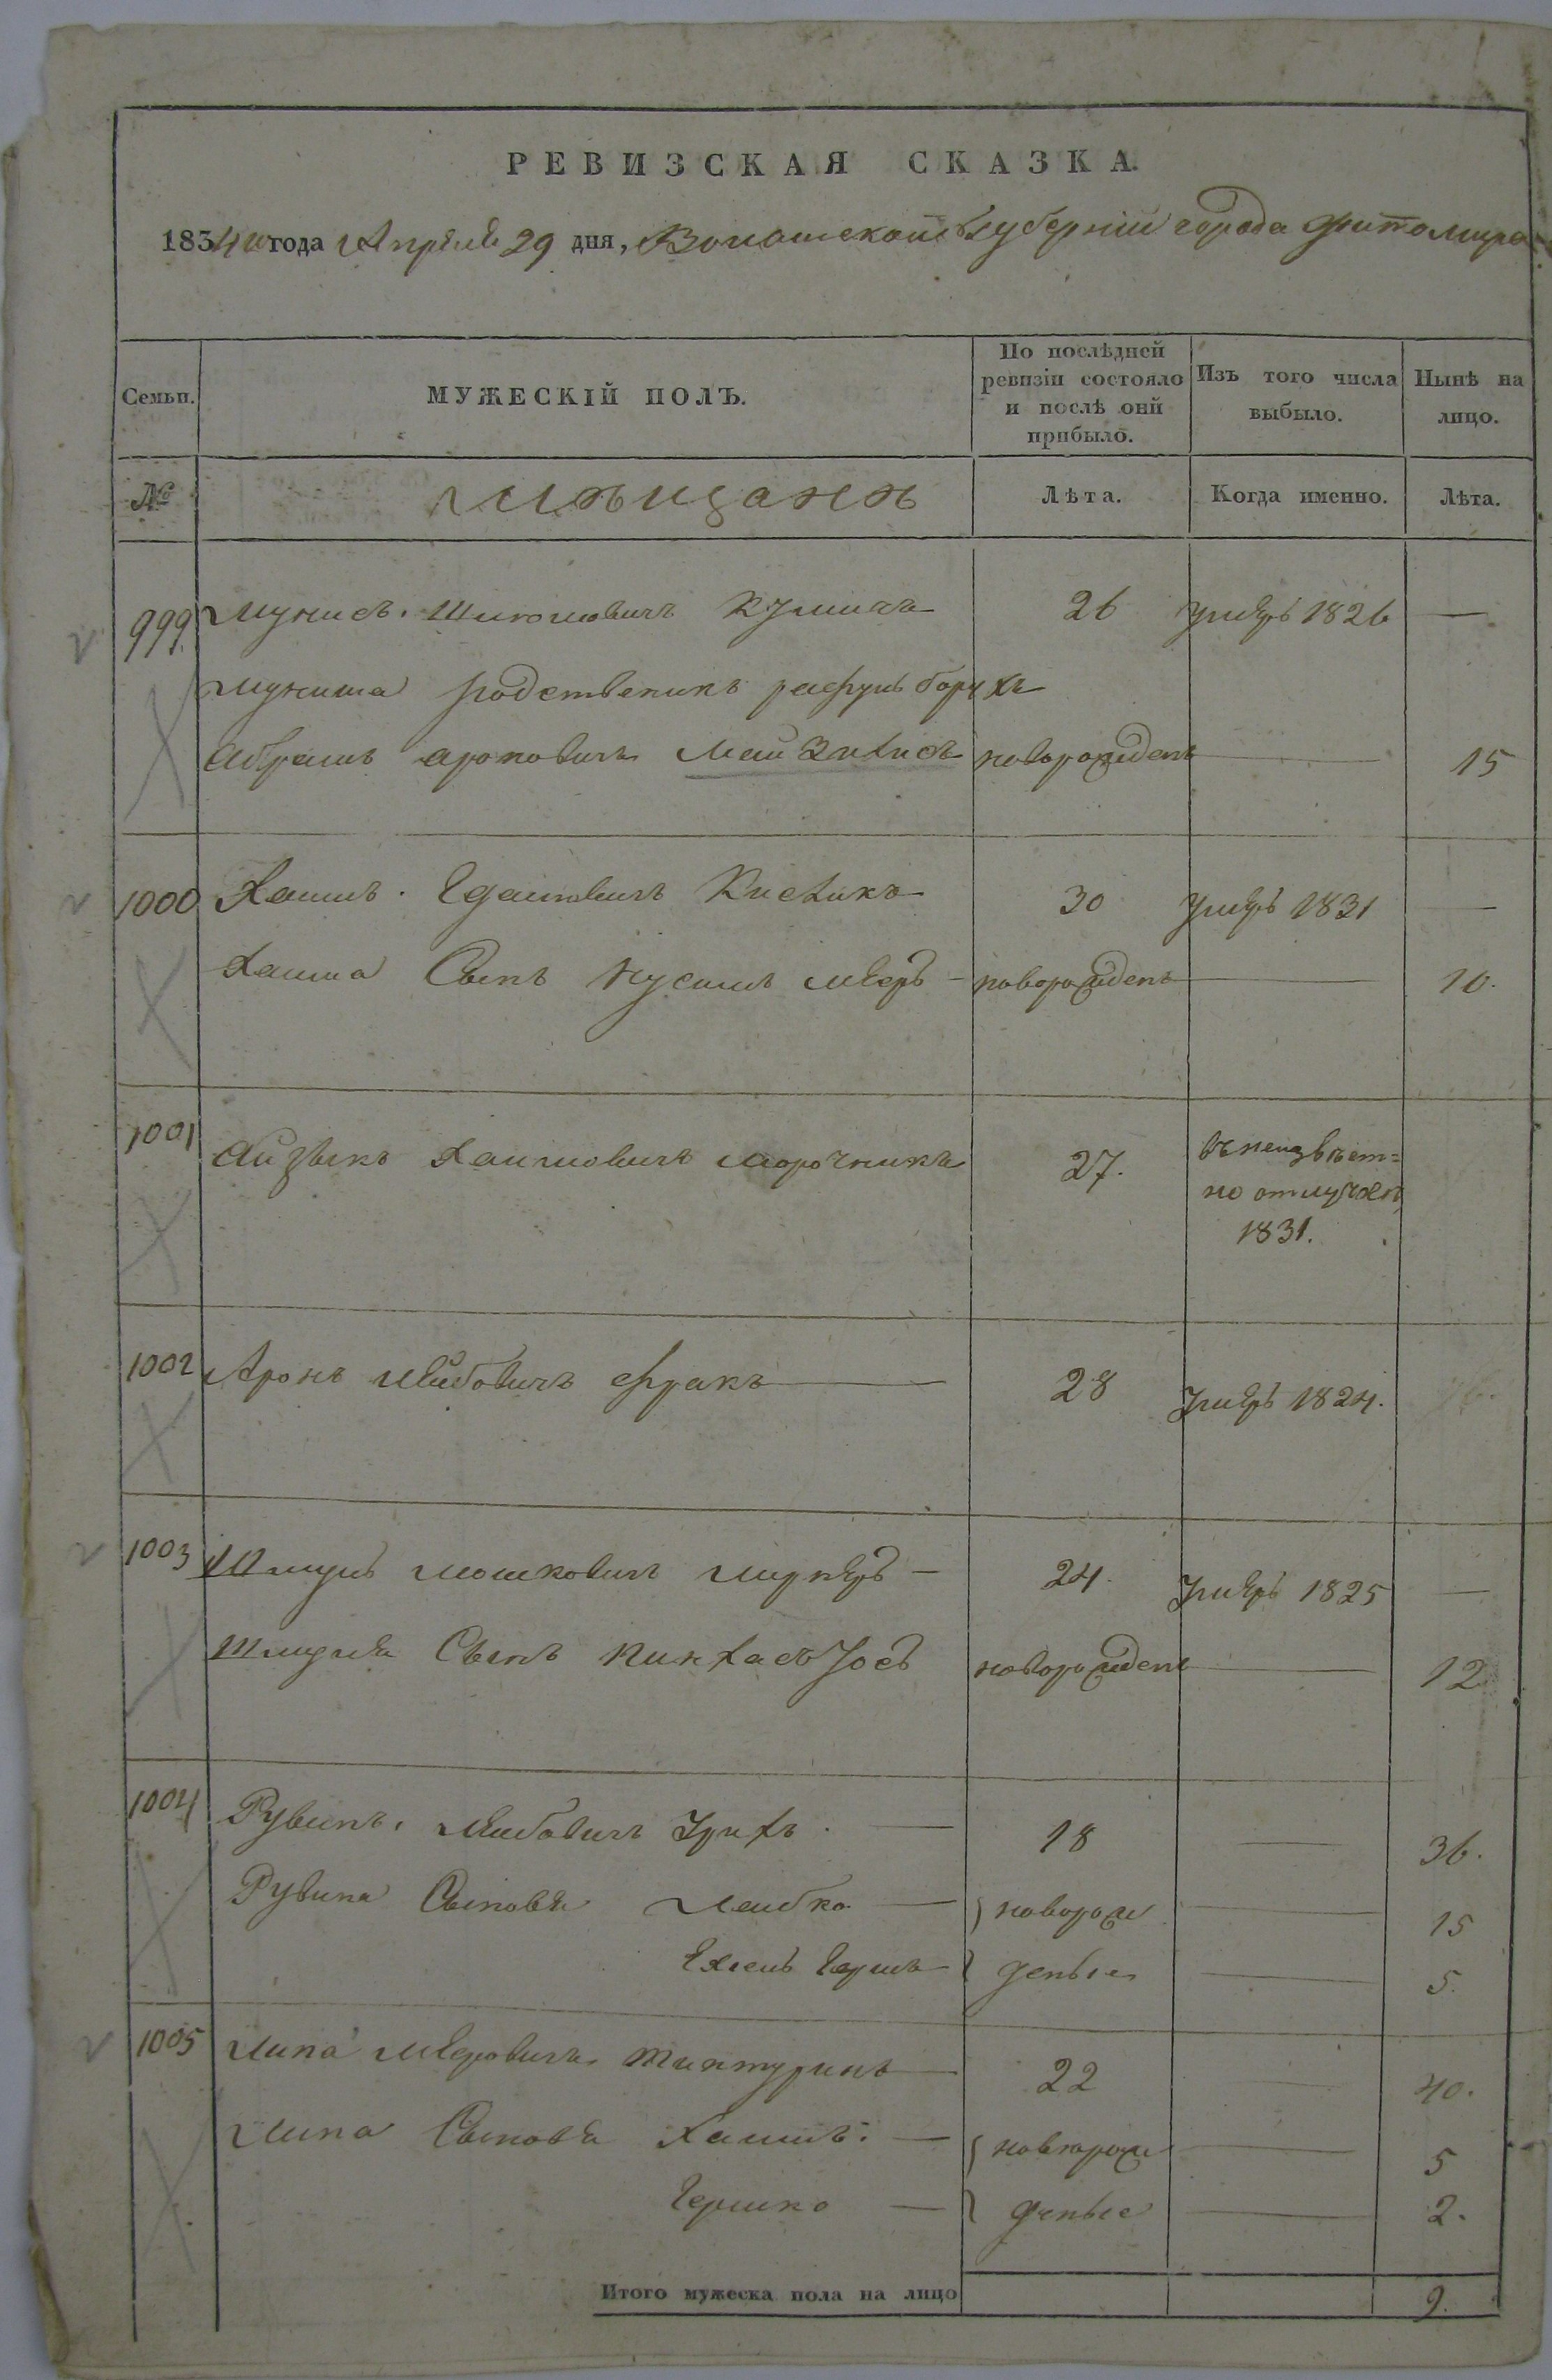 РЕВИЗСКАЯ СКАЗКА.
1834го года Апреля 29 дня, Волынской Губерніи города Житомира
Семьи.
МУЖЕСКІЙ ПОЛЪ.
По послѣдней ревизіи состояло и послѣ оній прибыло.
Изъ того числа выбыло.
Нынѣ на лицо.
№
мѣщанъ
Лѣта.
Когда именно.
Лѣта.
999. Мунисъ Шиомовичъ 26 умеръ 1826 —
родственикъ Борухъ
Абрамъ Ароновичъ новорожденъ — 15
1000 Хаимъ Кисликъ 30 умеръ 1831 —
Хаима Сынъ Нусимъ Мееръ — новорожденъ — 10.
1001 Айзыкъ Хаимовичъ Морочникъ 27. въ неизвѣст=
но отлучкѣ
1831.
1002 Аронъ Лейбовичъ Фуакъ — 28 умеръ 1824.
1003 Шмуль Мошковичъ — 24. умеръ 1825 —
Шмуля Сынъ Пинхасъ Іосъ новорожденъ — 12
1004 Рувинъ Лейбовичъ — 18 — 36.
Рувина Сыновья Лейбко — новорож — 15
Гершъ — деные — 5.
1005 Липа Мееровичъ — 22 — 40.
Липа Сыновья Хаимъ — новорож — 5
Гершко — деные — 2.
Итого мужеска пола на лицо 9.